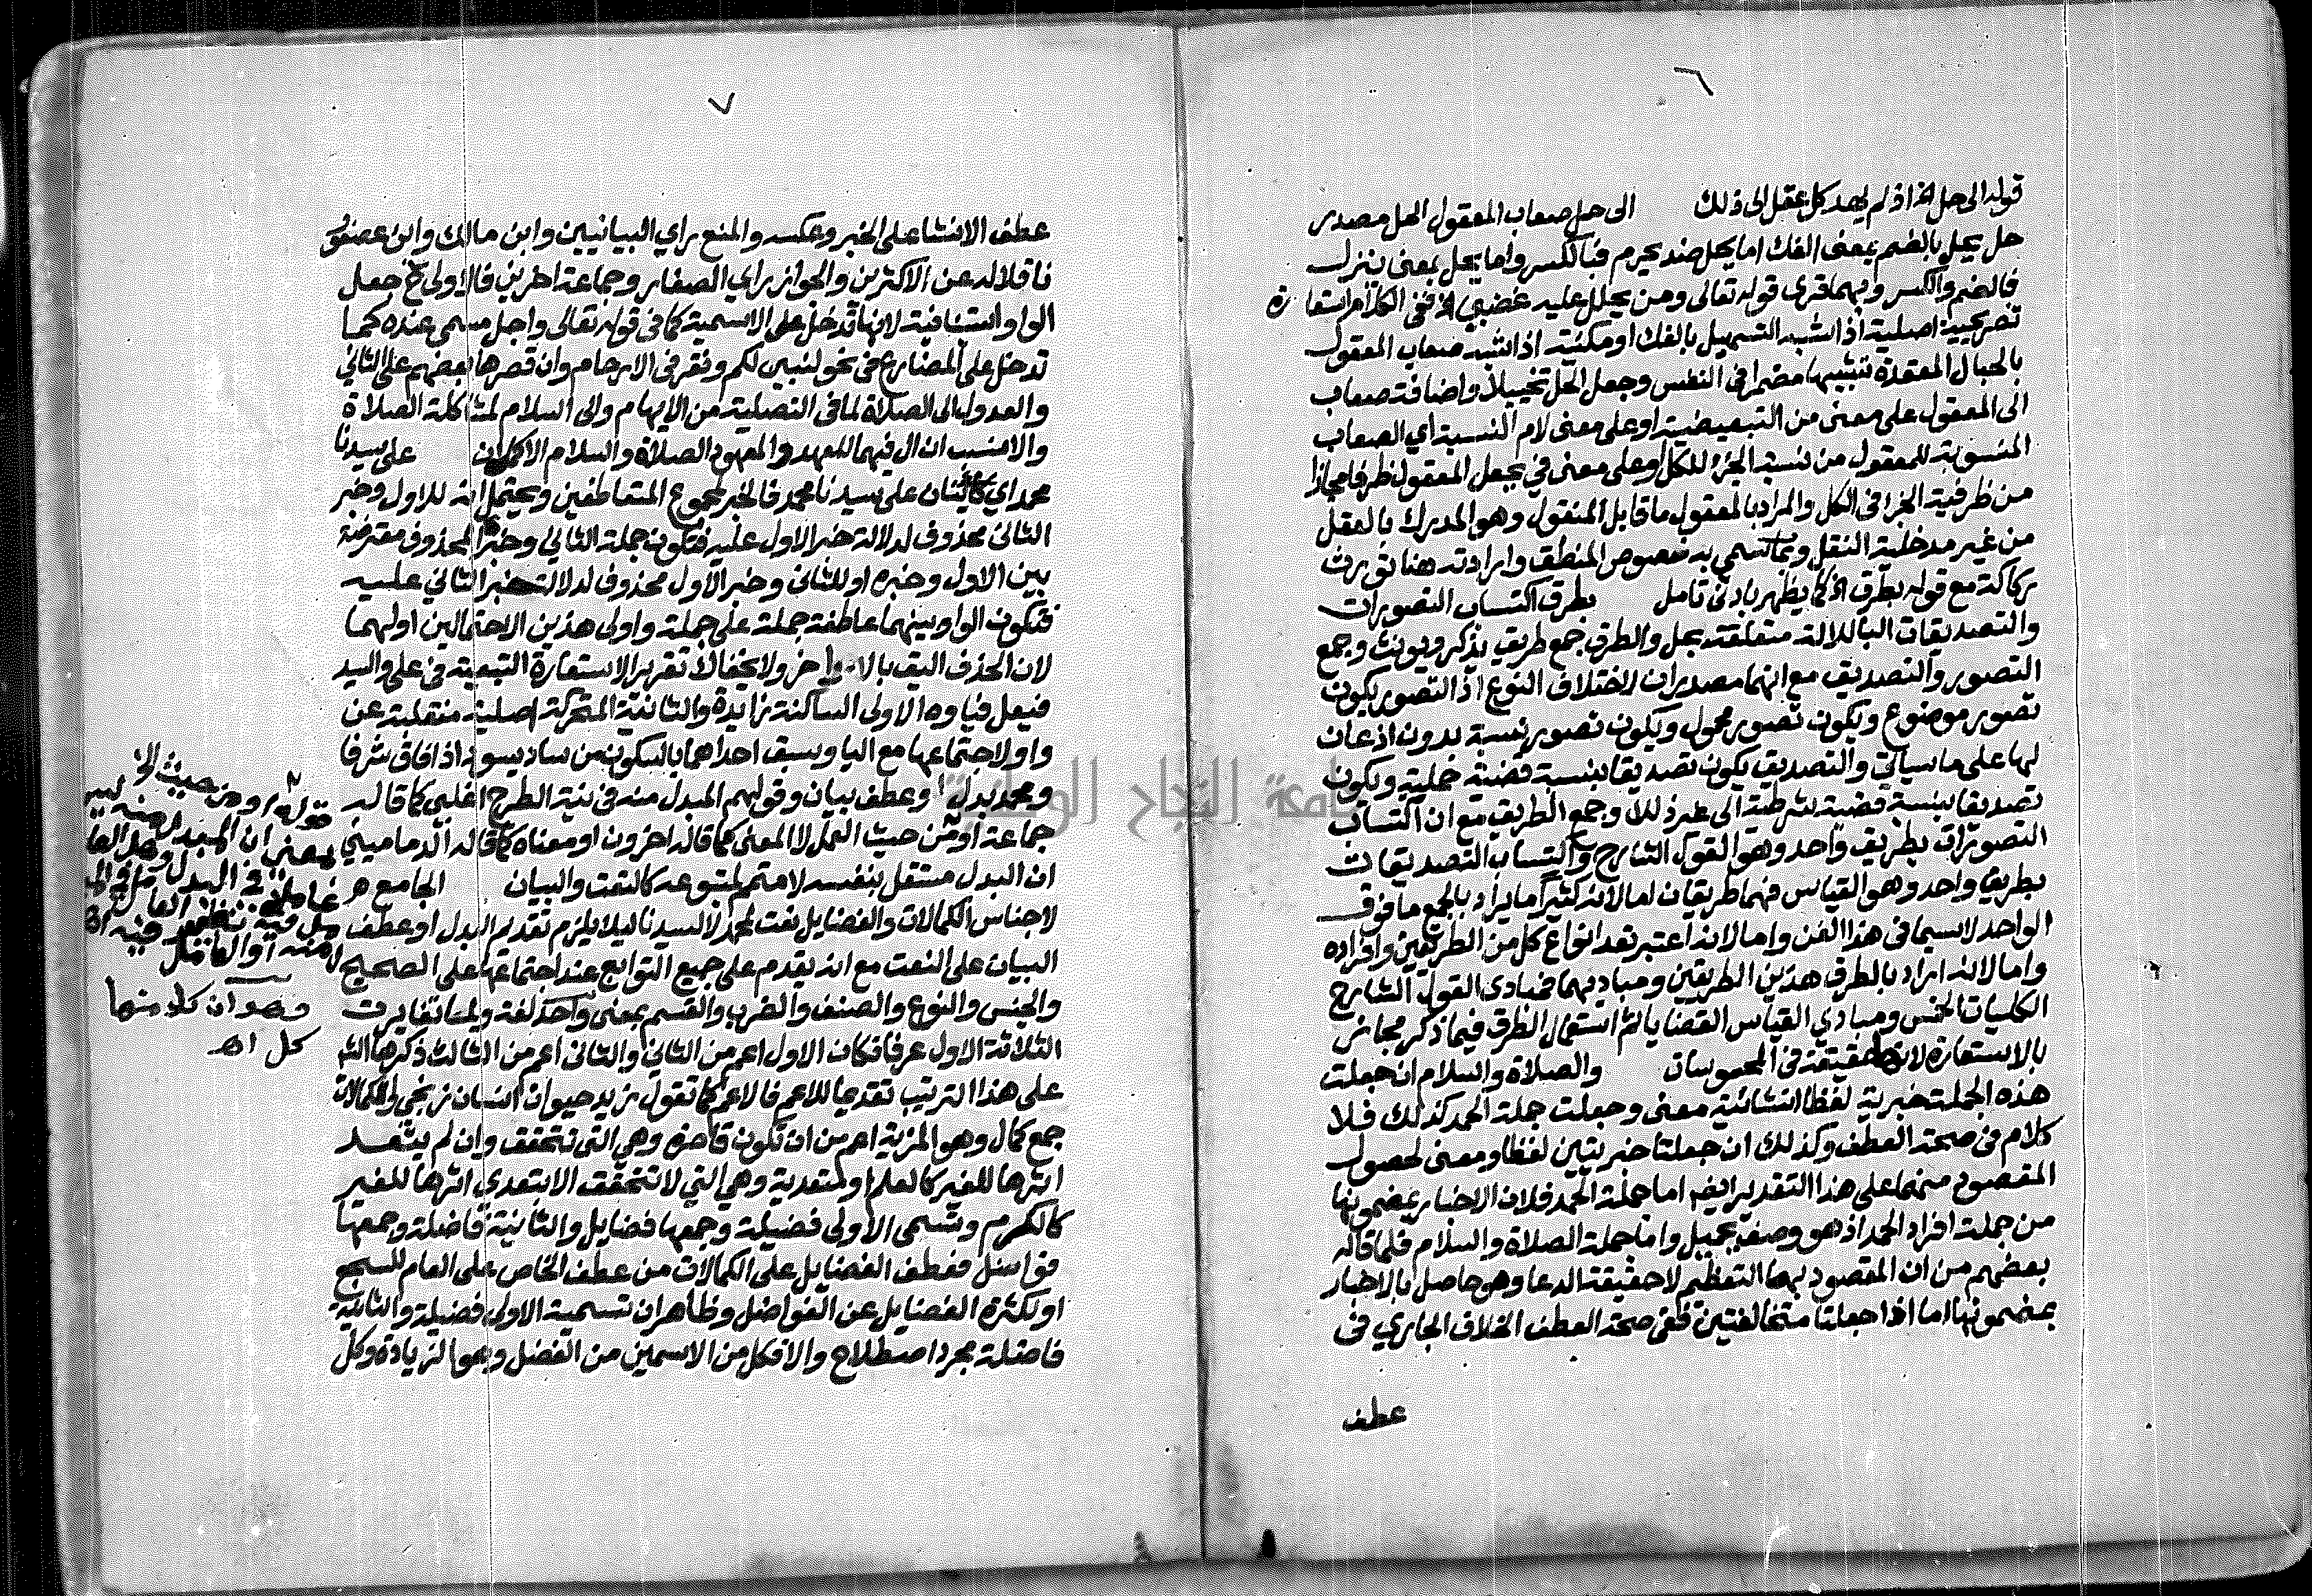 ٦
قوله الى حل الخ اذ لم يهد كل عقل الى ذلك الى حل صعاب المعقول الحل مصدر
حل يحل بالضم بمعنى الفك اما يحل ضد يحرم فبالكسر واما يحل بمعنى ينزل
فبالضم والكسر وبهما قرى قوله تعالى ومن يحلل عليه غضبي الخ ففي الكلام استعارة
تصريحية اصلية اذا شبه التسهيل بالفك او مكنية اذا شبه صعاب المعقول
بالحبال المعقدة تشبيها مضمرا في النفس وجعل الحل تخييلا واضافة صعاب
الى المعقول على معنى من التبعيضية او على معنى لام النسبة اي الصعاب
المنسوبة للمعقول من نسبة الجزء للكل او على معنى في بجعل المعقول ظرفا مجازا
من ظرفية الجزا في الكل والمراد بالمعقول ما قابل المنقول وهو المدرك بالعقل
من غير مدخلية النقل وربما تسمي به خصوص المنطق وارادته هنا تورث
ركاكة مع قوله بطرق الخ كما يظهر بادنى تامل بطرق اكتساب التصورات
والتصديقات الباللالة متعلقة بحل والطرق جمع طريق يذكر ويونث وجمع
التصور والتصديق مع انهما مصدران لاختلاف النوع اذ التصور يكون
تصور موضوع ويكون تصور محمول ويكون تصور نسبة بدون اذعان
لها على ما سياتي والتصديق يكون تصديقا بنسبة قضية حملية ويكون
تصديقا بنسبة قضية شرطية الى غير ذلك وجمع الطريق مع ان اكتساب
التصورات بطريق واحد وهو القول الشارح واكتساب التصديقات
بطريق واحد وهو القياس فهما طريقان اما لانه كثيرا ما يراد بالجمع ما فوق
الواحد لاسيما في هذا الفن واما لانه اعتبر تعدد انواع كل من الطريقين وافراده
واما لانه اراد بالطرق هذين الطريقين ومباديهما فمبادي القول الشارح
الكليات الخمس ومبادي القياس القضايا ثم استعمال الطرق فيما ذكر مجاز
بالاستعارة لانها حقيقة في المحسوسات والصلاة والسلام ان جعلت
هذه الجملة خبرية لفظا انشائية معنى وجعلت جملة الحمد كذلك فلا
كلام في صحة العطف وكذلك ان جعلتا خبريتين لفظا ومعنى لحصول
المقصود منهما على هذا التقدير ايضا اما جملة الحمد فلان الاخبار بمضمونها
من جملة افراد الحمد اذ هو وصف بجميل واما جملة الصلاة والسلام فلما قاله
بعضهم من ان المقصود بهما التعظيم لا حقيقة الدعا وهو حاصل بالاخبار
بمضمونها اما اذا جعلتا متخالفتين ففي صحة العطف الخلاف الجاري في
عطف
٧
عطف الانشا على الخبر وعكسه والمنع راي البيانيين وابن مالك وابن عصفور
ناقلا له عن الاكثرين والجواز راي الصفار وجماعة اخرين فالاولى ح جعل
الواو استئنافية لانها تدخل على الاسمية كما في قوله تعالى واجل مسمى عنده كما
تدخل على المضارع في نحو لنبين لكم ونقر في الارحام وان قصرها بعضهم على الثاني
والعدول الى الصلاة لما في التصلية من الايهام والى السلام لمشاكلة الصلاة
والانسب ان ال فيهما للعهد والمعهود الصلاة والسلام الاكملان على سيدنا
محمد اي كائنان على سيدنا محمد فالخبر لمجموع المتعاطفين ويحتمل انه للاول وخبر
الثاني محذوف لدلالة خبر الاول عليه فتكون جملة الثاني وخبره المحذوف معترضة
بين الاول وخبره او للثاني وخبر الاول محذوف لدلالة خبر الثاني عليه
فتكون الواو بينهما عاطفة جملة على جملة واولى هذين الاحتمالين اولهما
لان الحذف اليق بالاواخر ولا يخفاك تقرير الاستعارة التبعية في على والسيد
فيعل فياوه الاولى الساكنة زايدة والثانية المتحركة اصلية منقلبة عن
واو لاجتماعها مع اليا وسبق احداهما بالسكون من ساد يسود اذا فاق شرفا
ومحمد بدل او عطف بيان وقولهم المبدل منه في نية الطرح اغلبي كما قاله
جماعة او من حيث العمل لا المعنى كما قاله اخرون او معناه كما قاله الدماميني
ان البدل مستقل بنفسه لا متمم لمتبوعه كالنعت والبيان الجامع
لاجناس الكمالات والفضايل نعت لمحمد لا لسيدنا ليلا يلزم تقديم البدل او عطف
البيان على النعت مع انه يقدم على جميع التوابع عند اجتماعها على الصحيح
والجنس والنوع والصنف والضرب والقسم بمعنى واحد لغة وليتغاير
الثلاثة الاول عرفا فكان الاول اعم من الثاني والثاني اعم من الثالث ذكرها الشـ
على هذا الترتيب تقديما للاعم فالاعم كما تقول زيد حيوان انسان زنجي والكمالات
جمع كمال وهو المزية اعم من ان تكون قاصرة وهي التي تتحقق وان لم يتعد
اثرها للغير كالعلم او متعدية وهي التي لا تتحقق الا بتعدي اثرها للغير
كالكرم وتسمى الاولى فضيلة وجمعها فضايل والثانية فاضلة وجمعها
فواضل فعطف الفضايل على الكمالات من عطف الخاص على العام للسجع
او لكثرة الفضايل عن الفواضل وظاهر ان تسمية الاولى فضيلة والثانية
فاضلة مجرد اصطلاح والا فكل من الاسمين من الفضل وهو الزيادة وكل
قوله او من حيث الخ
يعني ان المبدل منه ليس
وهو ان كلا منهما
كل اهـ
جامعة النجاح الوطنية